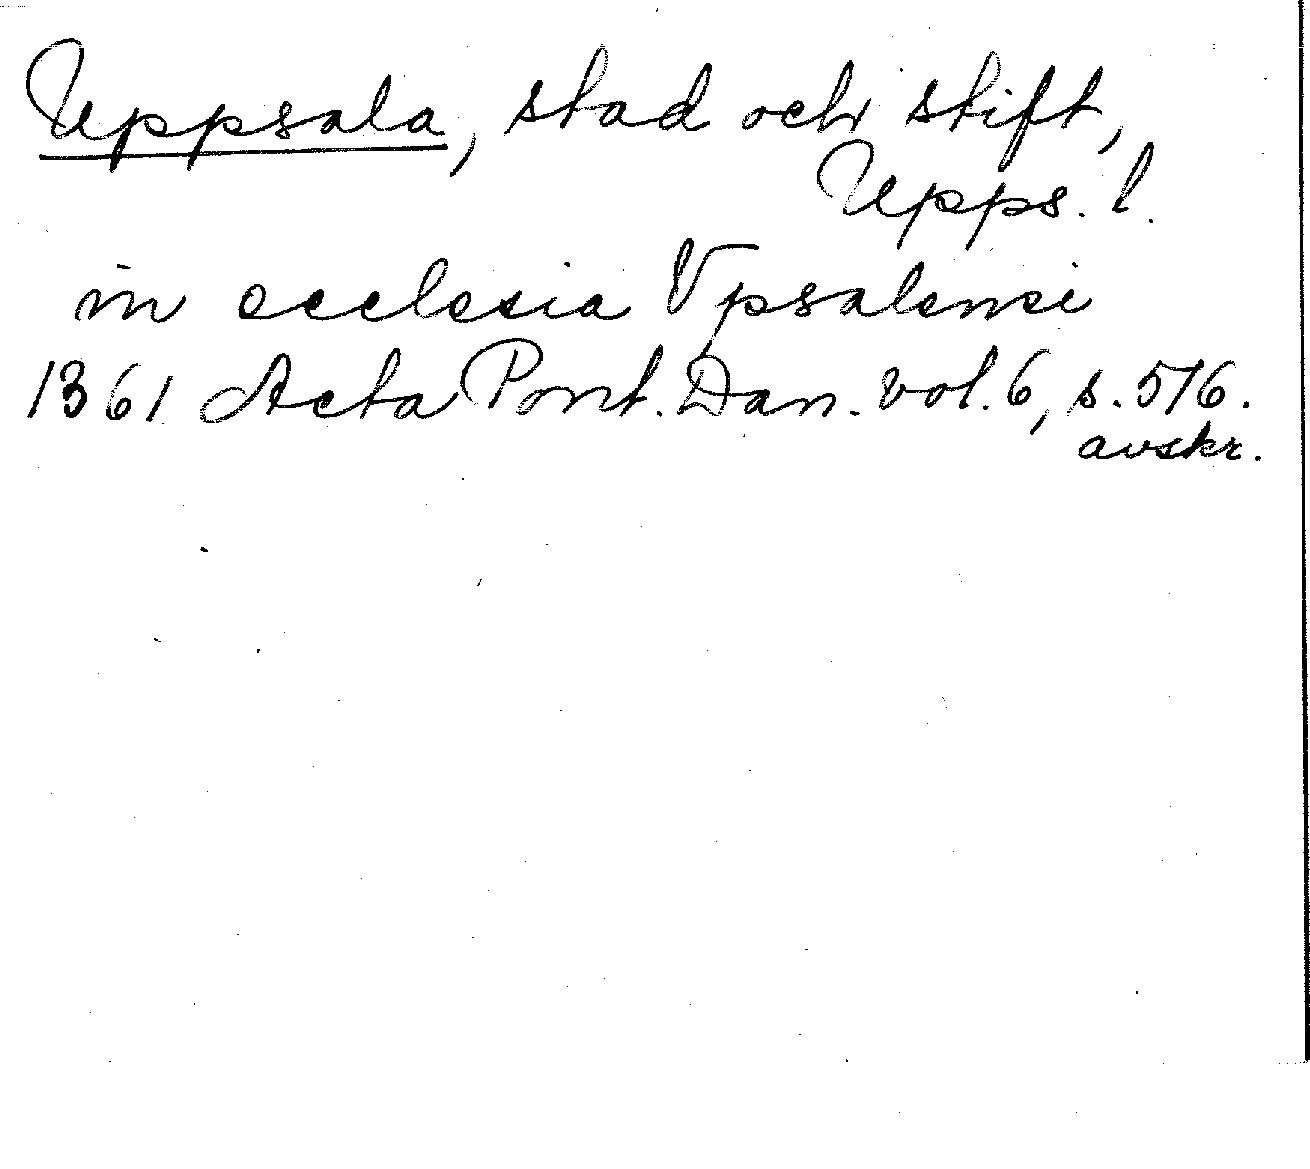 Uppsala, stad och stift,
Upps. l.
in ecclesia Vpsalensi
1361 Acta Pont. Dan. vol. 6, s. 576.
avskr.